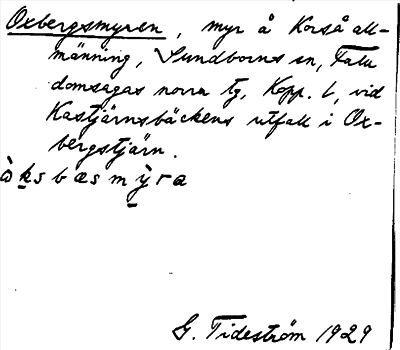 Oxbergsmyren, myr å Korså all-
männing, Sundborns sn, Falu
domsagas norra tg, Kopp. l, vid
Kastjärnsbäckens utfall i Ox-
bergstjärn.
òksbæsmỳra
G. Tideström 1929